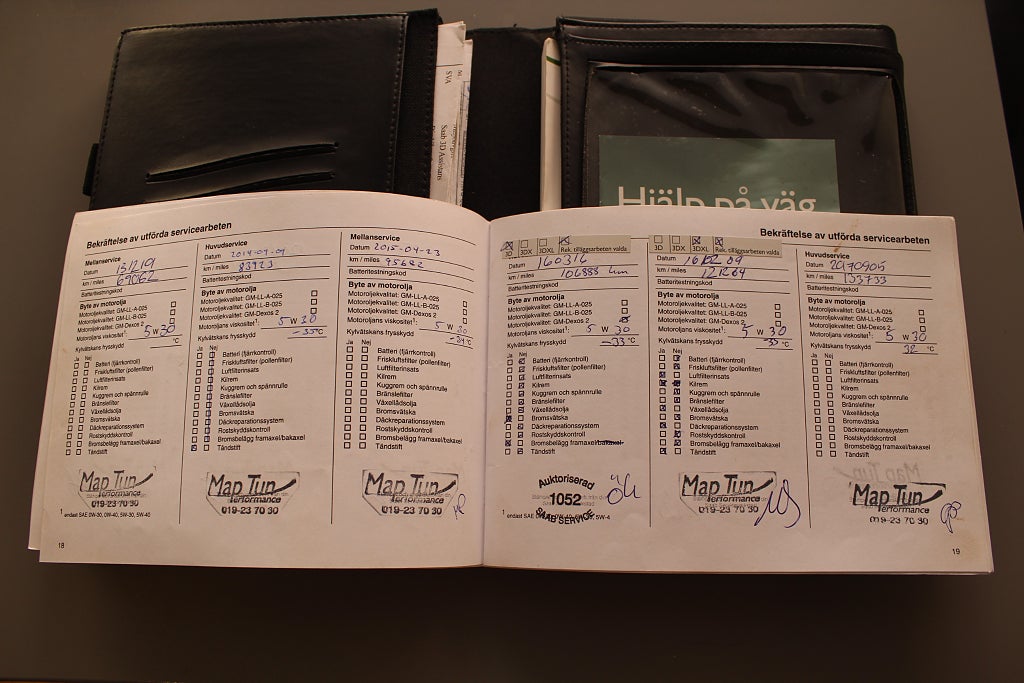 SVA
Saab 3D Assistans
Hjälp på väg
Bekräftelse av utförda servicearbeten
Mellanservice
Datum 131219
km / miles 69062
Batteritestningskod
Byte av motorolja
Motoroljekvalitet: GM-LL-A-025
Motoroljekvalitet: GM-LL-B-025
Motoroljekvalitet: GM-Dexos 2
Motoroljans viskositet¹: 5 W 30
Kylvätskans frysskydd °C
Ja Nej
Batteri (fjärrkontroll)
Friskluftsfilter (pollenfilter)
Luftfilterinsats
Kilrem
Kuggrem och spännrulle
Bränslefilter
Växellådsolja
Bromsvätska
Däckreparationssystem
Rostskyddskontroll
Bromsbelägg framaxel/bakaxel
Tändstift
Map Tun
Performance
019-23 70 30
¹ endast SAE 0W-30, 0W-40, 5W-30, 5W-40
18
Huvudservice
Datum
km / miles 83923
Batteritestningskod
Byte av motorolja
Motoroljekvalitet: GM-LL-A-025
Motoroljekvalitet: GM-LL-B-025
Motoroljekvalitet: GM-Dexos 2
Motoroljans viskositet¹: 5 W 30
Kylvätskans frysskydd -35°C
Ja Nej
Batteri (fjärrkontroll)
Friskluftsfilter (pollenfilter)
Luftfilterinsats
Kilrem
Kuggrem och spännrulle
Bränslefilter
Växellådsolja
Bromsvätska
Däckreparationssystem
Rostskyddskontroll
Bromsbelägg framaxel/bakaxel
Tändstift
Map Tun
Performance
019-23 70 30
Mellanservice
Datum 2015-04-23
km / miles 95642
Batteritestningskod
Byte av motorolja
Motoroljekvalitet: GM-LL-A-025
Motoroljekvalitet: GM-LL-B-025
Motoroljekvalitet: GM-Dexos 2
Motoroljans viskositet¹: 5 W 30
Kylvätskans frysskydd -34°C
Ja Nej
Batteri (fjärrkontroll)
Friskluftsfilter (pollenfilter)
Luftfilterinsats
Kilrem
Kuggrem och spännrulle
Bränslefilter
Växellådsolja
Bromsvätska
Däckreparationssystem
Rostskyddskontroll
Bromsbelägg framaxel/bakaxel
Tändstift
Map Tun
Performance
019-23 70 30
Bekräftelse av utförda servicearbeten
3D 3DX 3DXL Rek. tilläggsarbeten valda
Datum 160316
km / miles 106888 km
Batteritestningskod
Byte av motorolja
Motoroljekvalitet: GM-LL-A-025
Motoroljekvalitet: GM-LL-B-025
Motoroljekvalitet: GM-Dexos 2
Motoroljans viskositet¹: 5 W 30
Kylvätskans frysskydd -33 °C
Ja Nej
Batteri (fjärrkontroll)
Friskluftsfilter (pollenfilter)
Luftfilterinsats
Kilrem
Kuggrem och spännrulle
Bränslefilter
Växellådsolja
Bromsvätska
Däckreparationssystem
Rostskyddskontroll
Bromsbelägg framaxel/bakaxel
Tändstift
Auktoriserad
1052
SAAB SERVICE
3D 3DX 3DXL Rek. tilläggsarbeten valda
Datum
km / miles
Batteritestningskod
Byte av motorolja
Motoroljekvalitet: GM-LL-A-025
Motoroljekvalitet: GM-LL-B-025
Motoroljekvalitet: GM-Dexos 2
Motoroljans viskositet¹: 5 W 30
Kylvätskans frysskydd -35 °C
Ja Nej
Batteri (fjärrkontroll)
Friskluftsfilter (pollenfilter)
Luftfilterinsats
Kilrem
Kuggrem och spännrulle
Bränslefilter
Växellådsolja
Bromsvätska
Däckreparationssystem
Rostskyddskontroll
Bromsbelägg framaxel/bakaxel
Tändstift
Map Tun
Performance
019-23 70 30
Huvudservice
Datum 20170905
km / miles 133733
Batteritestningskod
Byte av motorolja
Motoroljekvalitet: GM-LL-A-025
Motoroljekvalitet: GM-LL-B-025
Motoroljekvalitet: GM-Dexos 2
Motoroljans viskositet¹: 5 W 30
Kylvätskans frysskydd 32 °C
Ja Nej
Batteri (fjärrkontroll)
Friskluftsfilter (pollenfilter)
Luftfilterinsats
Kilrem
Kuggrem och spännrulle
Bränslefilter
Växellådsolja
Bromsvätska
Däckreparationssystem
Rostskyddskontroll
Bromsbelägg framaxel/bakaxel
Tändstift
Map Tun
Performance
019-23 70 30
19